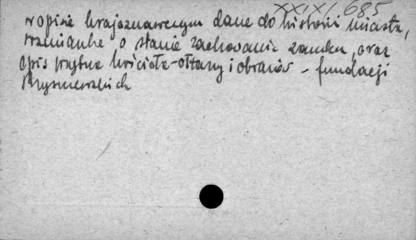 XXIX/. 685
w opisie krajoznawczym dane do historii miasta,
wzmianka o stanie zachowania zamku, oraz
opis wnętrza kościoła - ołtarzy i obrazów - fundacji